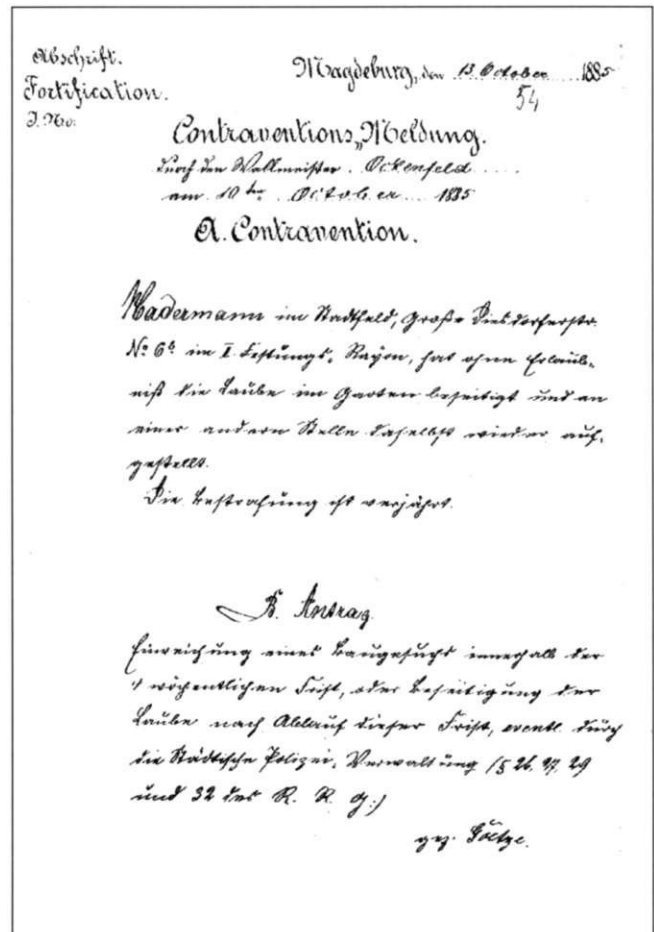 Abschrift.
Fortification.
J. No:
Magdeburg, den 13. October 1885
54
Contraventions-Meldung.
durch den Wallmeister Ockenfeld
am 10ten October 1885
A. Contravention.
Hadermann im Stadtfeld, Große Diesdorferstr.
No 6b im I. Festungs-Rayon, hat ohne Erlaub-
niß die Laube im Garten beseitigt und an
einer andern Stelle daselbst wieder auf-
gestellt.
Die Bestrafung ist verjährt.
B. Antrag
Einreichung eines Baugesuchs innerhalb der
wöchentlichen Frist, oder Beseitigung der
Laube nach Ablauf dieser Frist, eventl. durch
die Städtische Polizei-Verwaltung (§ 26, 27, 29
und 32 des R. R. G.)
gez. Goetze.